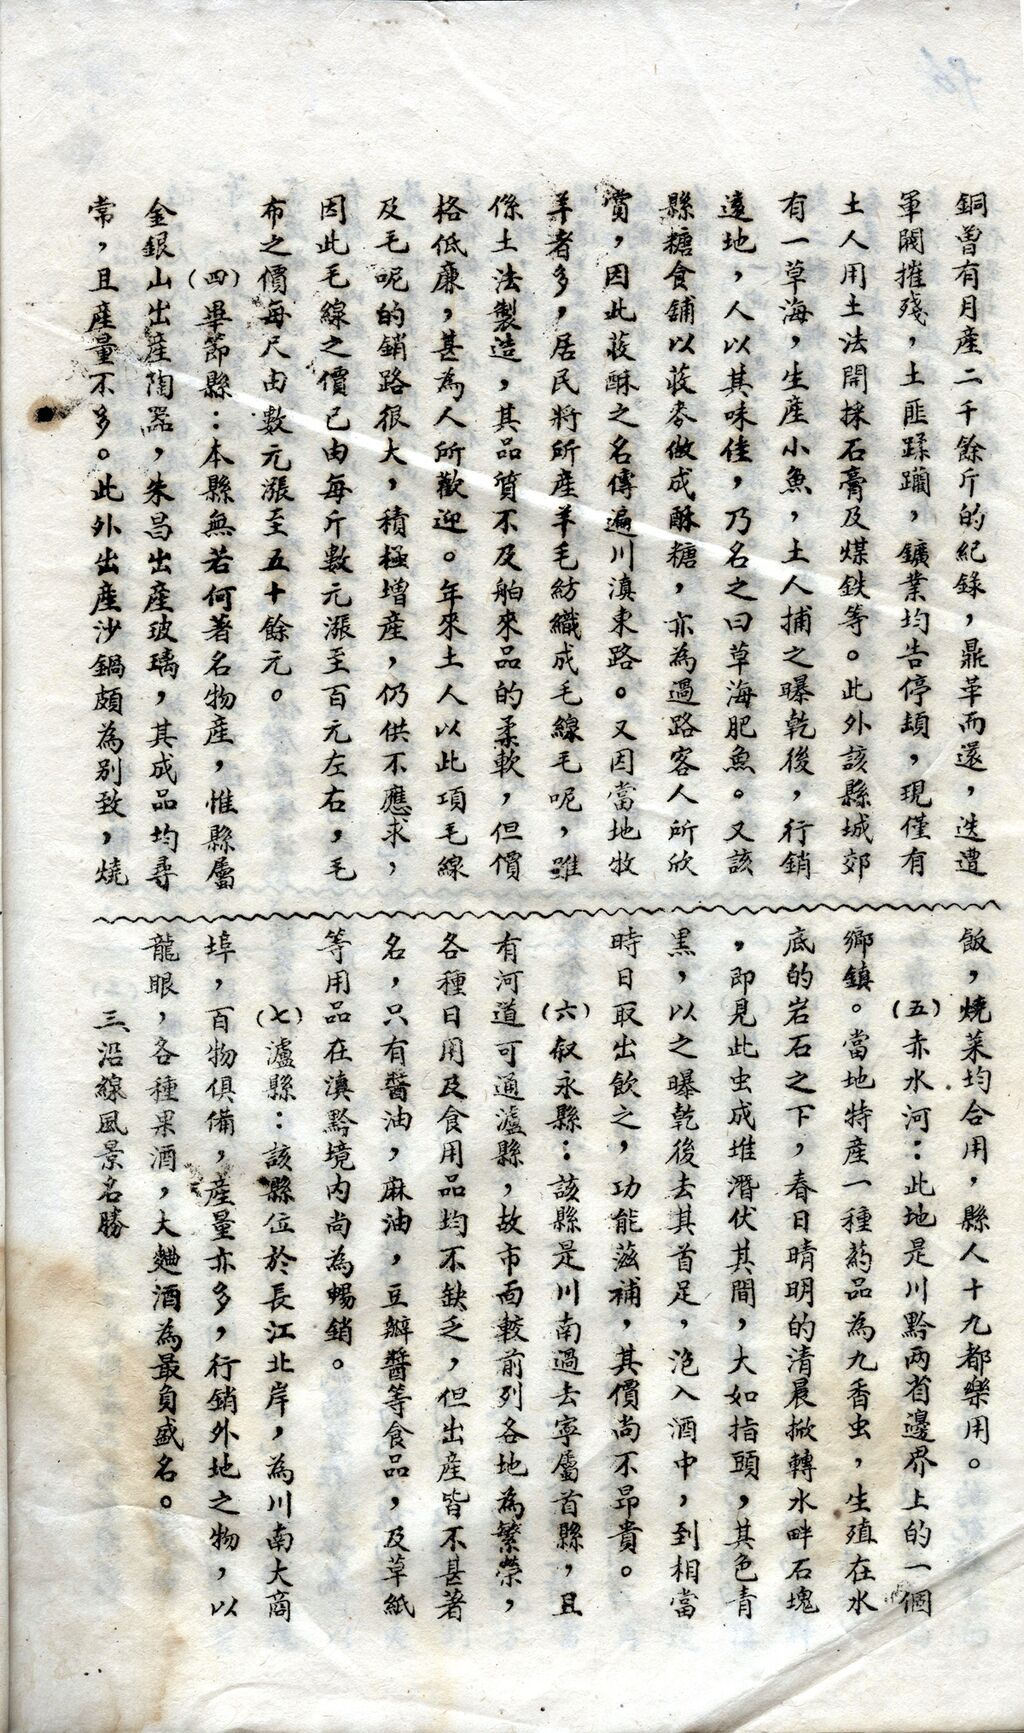 銅曾有月產二千餘斤的紀錄，鼎革而還，迭遭
軍閥摧殘，土匪蹂躪，鑛業均告停頓，現僅有
土人用土法開採石膏及煤鉄等。此外該縣城郊
有一草海，生產小魚，土人捕之曝乾後，行銷
遠地，人以其味佳，乃名之曰草海肥魚。又該
縣糖食舖以莜麥做成酥糖，亦為過路客人所欣
賞，因此莜酥之名傳遍川滇東路。又因當地牧
羊者多，居民將所產羊毛紡織成毛線毛呢，雖
係土法製造，其品質不及舶來品的柔軟，但價
格低廉，甚為人所歡迎。年來土人以此項毛線
及毛呢的銷路很大，積極增產，仍供不應求，
因此毛線之價已由每斤數元漲至百元左右，毛
布之價每尺由數元漲至五十餘元。
(四)畢節縣：本縣無若何著名物產，惟縣屬
金銀山出產陶器，朱昌出產玻璃，其成品均尋
常，且產量不多。此外出產沙鍋頗為別致，燒
飯，燒菜均合用，縣人十九都樂用。
(五)赤水河：此地是川黔两省邊界上的一個
鄉鎮。當地特產一種葯品為九香虫，生殖在水
底的岩石之下，春日晴明的清晨掀轉水畔石塊
，即見此虫成堆潛伏其間，大如指頭，其色青
黑，以之曝乾後去其首足，泡入酒中，到相當
時日取出飲之，功能滋補，其價尚不昂貴。
(六)叙永縣：該縣是川南過去寧屬首縣，且
有河道可通瀘縣，故市面較前列各地為繁榮，
各種日用及食用品均不缺乏，但出產皆不甚著
名，只有醬油，麻油，豆瓣醬等食品，及草紙
等用品在滇黔境内尚為暢銷。
(七)瀘縣：該縣位於長江北岸，為川南大商
埠，百物俱備，產量亦多，行銷外地之物，以
龍眼，各種果酒，大麯酒為最負盛名。
三、沿線風景名勝